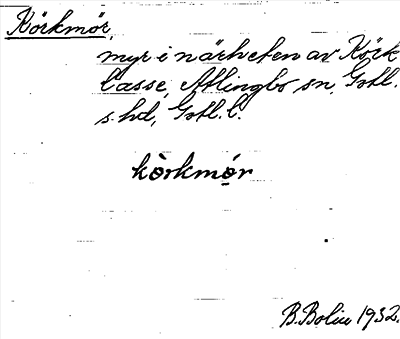 Körkmör,
myr i närheten av Körk
lasse, Atlingbo sn, Gotl.
s. hd, Gotl. l.
kòrkmó̲r
B. Bolin 1932.